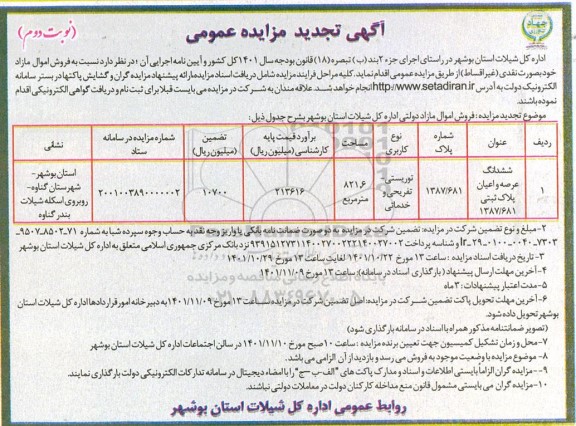 آگهی تجدید مزایده عمومی
(نوبت دوم)
اداره کل شیلات استان بوشهر در راستای اجرای جزء ۲بند (ب) تبصره (۱۸) قانون بودجه سال ۱۴۰۱ کل کشور و آیین نامه اجرایی آن ؛ در نظر دارد نسبت به فروش اموال مازاد
خود بصورت نقدی (غیر اقساط) از طریق مزایده عمومی اقدام نماید. کلیه مراحل فرایند مزایده شامل دریافت اسناد مزایده ارائه پیشنهاد مزایده گران و گشایش پاکتها در بستر سامانه
الکترونیک دولت به آدرس http://www.setadiran.ir انجام خواهد شد. علاقه مندان به شرکت در مزایده می بایست قبلا برای ثبت نام و دریافت گواهی الکترونیکی اقدام
نموده باشند.
موضوع تجدید مزایده : فروش اموال مازاد دولتی اداره کل شیلات استان بوشهر بشرح جدول ذیل:
ردیف | عنوان | شماره پلاک | نوع کاربری | مساحت | برآورد قیمت پایه کارشناسی (میلیون ریال) | تضمین (میلیون ریال) | شماره مزایده در سامانه ستاد | نشانی
۱ | ششدانگ عرصه و اعیان پلاک ثبتی ۱۳۸۷/۶۸۱ | ۱۳۸۷/۶۸۱ | توریستی-تفریحی و خدماتی | ۸۲۱,۶ مترمربع | ۲۱۳۶۱۶ | ۱۰۷۰۰ | ۲۰۰۱۰۰۳۸۹۰۰۰۰۰۰۲ | استان بوشهر- شهرستان گناوه- روبروی اسکله شیلات بندر گناوه
۲- مبلغ و نوع تضمین شرکت در مزایده: تضمین شرکت در مزایده به دو صورت ضمانت نامه بانکی یا واریز وجه نقد به حساب وجوه سپرده شبا به شماره
۳- تاریخ دریافت اسناد مزایده : ساعت ۱۳ مورخ ۱۴۰۱/۱۰/۲۲ لغایت ساعت ۱۳ مورخ ۱۴۰۱/۱۰/۲۹
۴- آخرین مهلت ارسال پیشنهاد (بارگذاری اسناد در سامانه): ساعت ۱۳ مورخ ۱۴۰۱/۱۱/۰۹
۵- مدت اعتبار پیشنهادات : ۳ ماه
۶- آخرین مهلت تحویل پاکت تضمین شرکت در مزایده: اصل تضمین شرکت در مزایده تا ساعت ۱۳ مورخ ۱۴۰۱/۱۱/۰۹ به دبیرخانه امور قراردادها اداره کل شیلات استان
بوشهر تحویل داده شود.
(تصویر ضمانتنامه مذکور همراه با اسناد در سامانه بارگذاری شود)
۷- محل و زمان تشکیل کمیسیون جهت تعیین برنده مزایده : ساعت ۱۰ صبح مورخ ۱۴۰۱/۱۱/۱۰ در سالن اجتماعات اداره کل شیلات استان بوشهر
۸- موضوع مزایده با وضعیت موجود به فروش می رسد و بازدید از آن الزامی می باشد.
۹- مزایده گران الزاماً بایستی اطلاعات و اسناد و مدارک پاکت های "الف-ب-ج" را با امضاء دیجیتال در سامانه تدارکات الکترونیکی دولت بارگذاری نمایند.
۱۰- مزایده گران می بایستی مشمول قانون منع مداخله کارکنان دولت در معاملات دولتی نباشند.
روابط عمومی اداره کل شیلات استان بوشهر